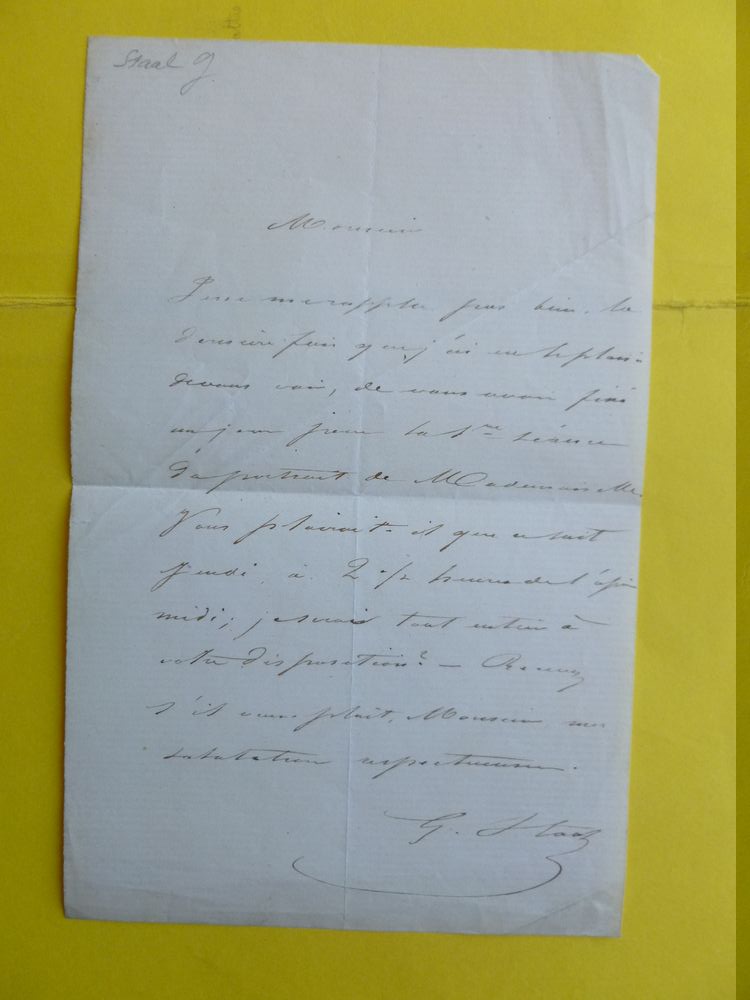 Staal g
Monsieur
Je ne me rappelle pas bien, la
dernière fois que j'ai eu le plaisir
de vous voir, de vous avoir fixé
un jour pour la 1re séance
du portrait de Mademoiselle.
Vous plairait-il que ce soit
Jeudi, à 2 1/2 heures de l'après
midi; je serais tout entier à
votre disposition? — Recevez
s'il vous plait, Monsieur mes
salutations respectueuses.
G. Staal